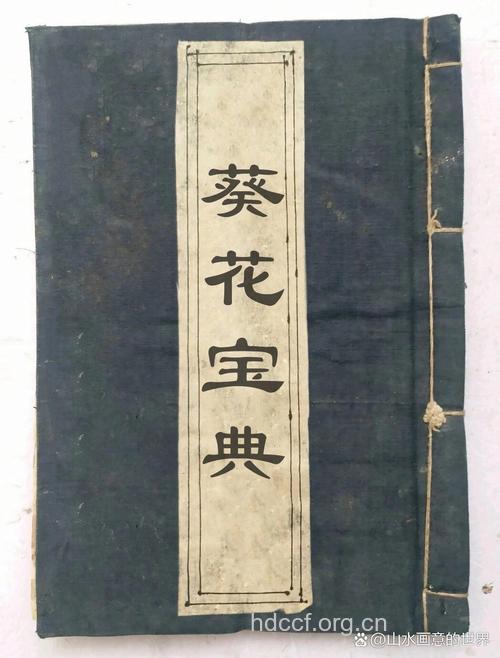 葵花宝典
hdccf.org.cn
@山水画意的世界